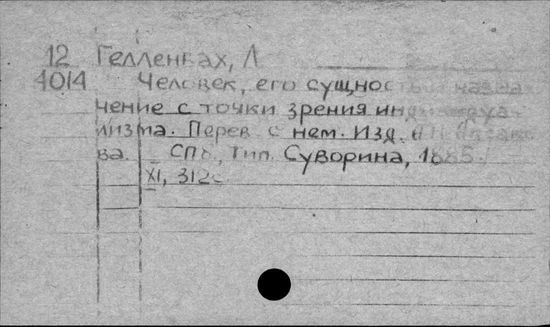 12 Гелленбах, Л
4014 Человек, его сущность и назна
чение с точки зрения индивидуа
лизма. Перев. с нем. Изд.
ва. СПб., Тип. Суворина, 1885.
XI, 312с